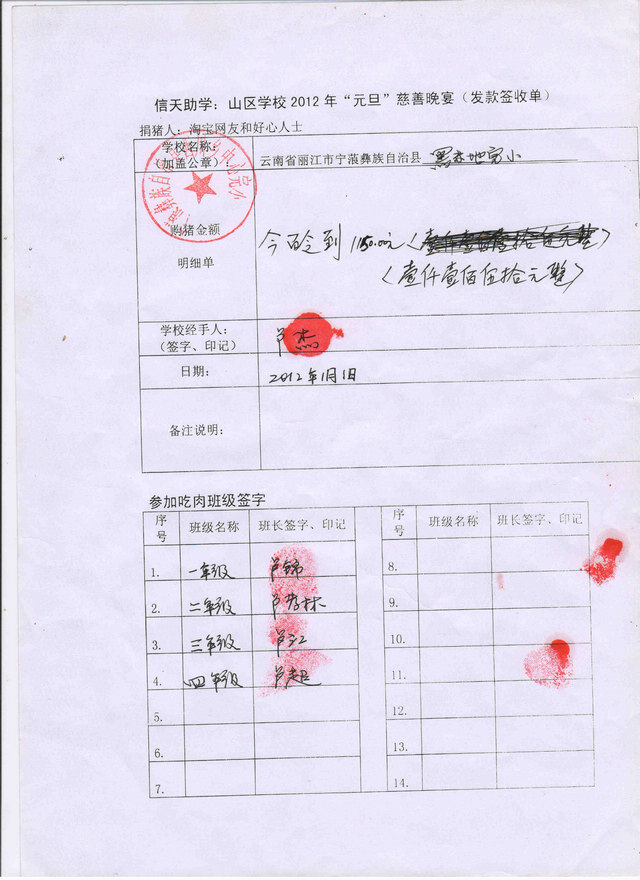 信天助学：山区学校2012年“元旦”慈善晚宴（发款签收单）
捐猪人：淘宝网友和好心人士
学校名称：
（加盖公章）：
云南省丽江市宁蒗彝族自治县 黑赤地完小
购猪金额
明细单
今日领到 1150.00元（
（壹仟壹佰伍拾元整）
学校经手人：
（签字、印记）
卢杰
日期：
2012年1月1日
备注说明：
参加吃肉班级签字
序号 班级名称 班长签字、印记 序号 班级名称 班长签字、印记
1. 一年级 卢锦 8.
2. 二年级 卢 林 9.
3. 三年级 卢江 10.
4. 四年级 卢超 11.
5. 12.
6. 13.
7. 14.